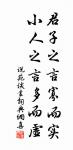 君子之言寡而实
小人之言多而虚
说苑谈丛词典网喜